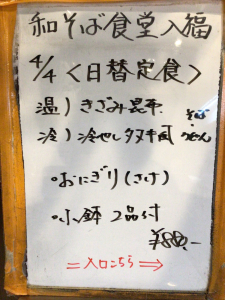 和そば食堂入福
4/4 <日替定食>
温) きざみ昆布 そば
冷) 冷やしタヌキ うどん
・おにぎり(さけ)
・小鉢 2品付
¥880.-
=入口こちら⇒